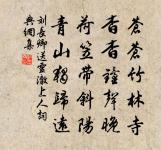 蒼蒼竹林寺
杳杳鐘聲晚
荷笠帶斜陽
青山獨歸遠
劉長卿送靈澈上人詞
典網集